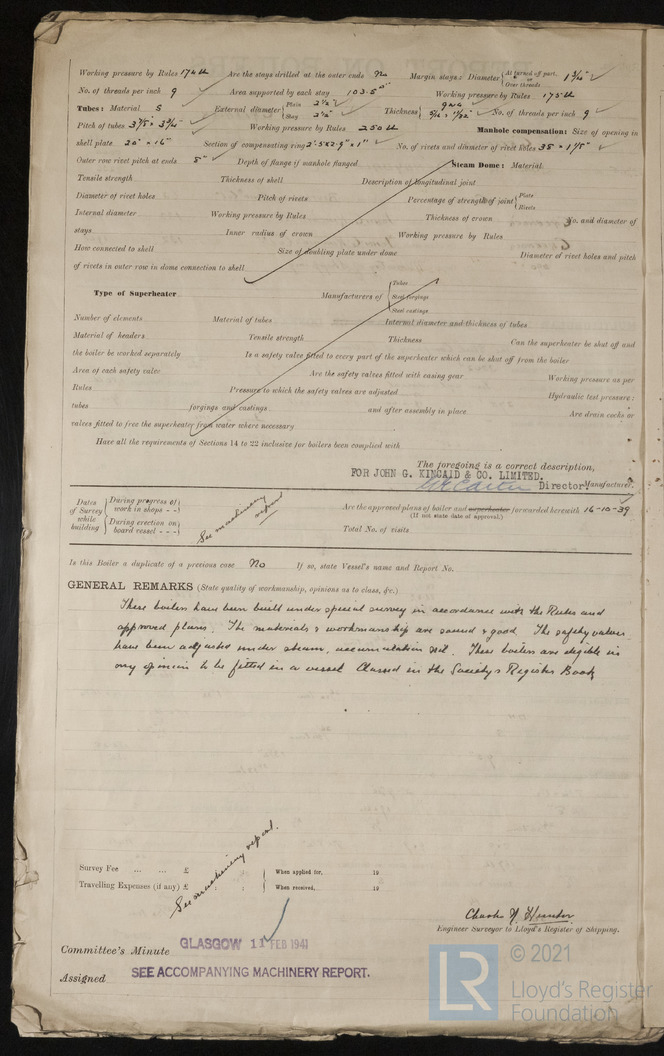 Working pressure by Rules 174 lb Are the stays drilled at the outer ends No Margin stays: Diameter { At turned off part, or Over threads 1 3/4" ✓
No. of threads per inch 9 ✓ Area supported by each stay 103.5 □" Working pressure by Rules 175 lb
Tubes: Material S ✓ External diameter { Plain 2 1/2" ✓ Stay 2 1/2" Thickness { 9 WG ✓ 5/16" & 11/32" ✓ No. of threads per inch 9 ✓
Pitch of tubes 3 7/8" × 3 3/4" ✓ Working pressure by Rules 250 lb Manhole compensation: Size of opening in
shell plate 20" × 16" Section of compensating ring 1" ✓ No. of rivets and diameter of rivet holes 38 - 1 1/8" ✓
Outer row rivet pitch at ends 8" ✓ Depth of flange if manhole flanged Steam Dome: Material
Tensile strength Thickness of shell Description of longitudinal joint
Diameter of rivet holes Pitch of rivets Percentage of strength of joint { Plate Rivets
Internal diameter Working pressure by Rules Thickness of crown No. and diameter of
stays Inner radius of crown Working pressure by Rules
How connected to shell Size of doubling plate under dome Diameter of rivet holes and pitch
of rivets in outer row in dome connection to shell
Type of Superheater Manufacturers of { Tubes Steel forgings Steel castings
Number of elements Material of tubes Internal diameter and thickness of tubes
Material of headers Tensile strength Thickness Can the superheater be shut off and
the boiler be worked separately Is a safety valve fitted to every part of the superheater which can be shut off from the boiler
Area of each safety valve Are the safety valves fitted with easing gear Working pressure as per
Rules Pressure to which the safety valves are adjusted Hydraulic test pressure:
tubes forgings and castings and after assembly in place Are drain cocks or
valves fitted to free the superheater from water where necessary
Have all the requirements of Sections 14 to 22 inclusive for boilers been complied with
The foregoing is a correct description,
FOR JOHN G. KINCAID & CO. LIMITED.
Director Manufacturer.
Dates of Survey while building { During progress of work in shops - - During erection on board vessel - - - See machinery report
Are the approved plans of boiler and superheater forwarded herewith 16-10-39
(If not state date of approval.)
Total No. of visits
Is this Boiler a duplicate of a previous case No If so, state Vessel's name and Report No.
GENERAL REMARKS (State quality of workmanship, opinions as to class, &c.)
These boilers have been built under special survey in accordance with the Rules and
approved plans. The materials & workmanship are sound & good. The safety valves
have been adjusted under steam, accumulation test. These boilers are eligible in
my opinion to be fitted in a vessel Classed in the Society's Register Book
Survey Fee ... ... £ : : { When applied for, 19
Travelling Expenses (if any) £ : : When received, 19
See machinery report.
Charles
Engineer Surveyor to Lloyd's Register of Shipping.
Committee's Minute GLASGOW 11 FEB 1941
Assigned SEE ACCOMPANYING MACHINERY REPORT.
LR
© 2021
Lloyd's Register
Foundation